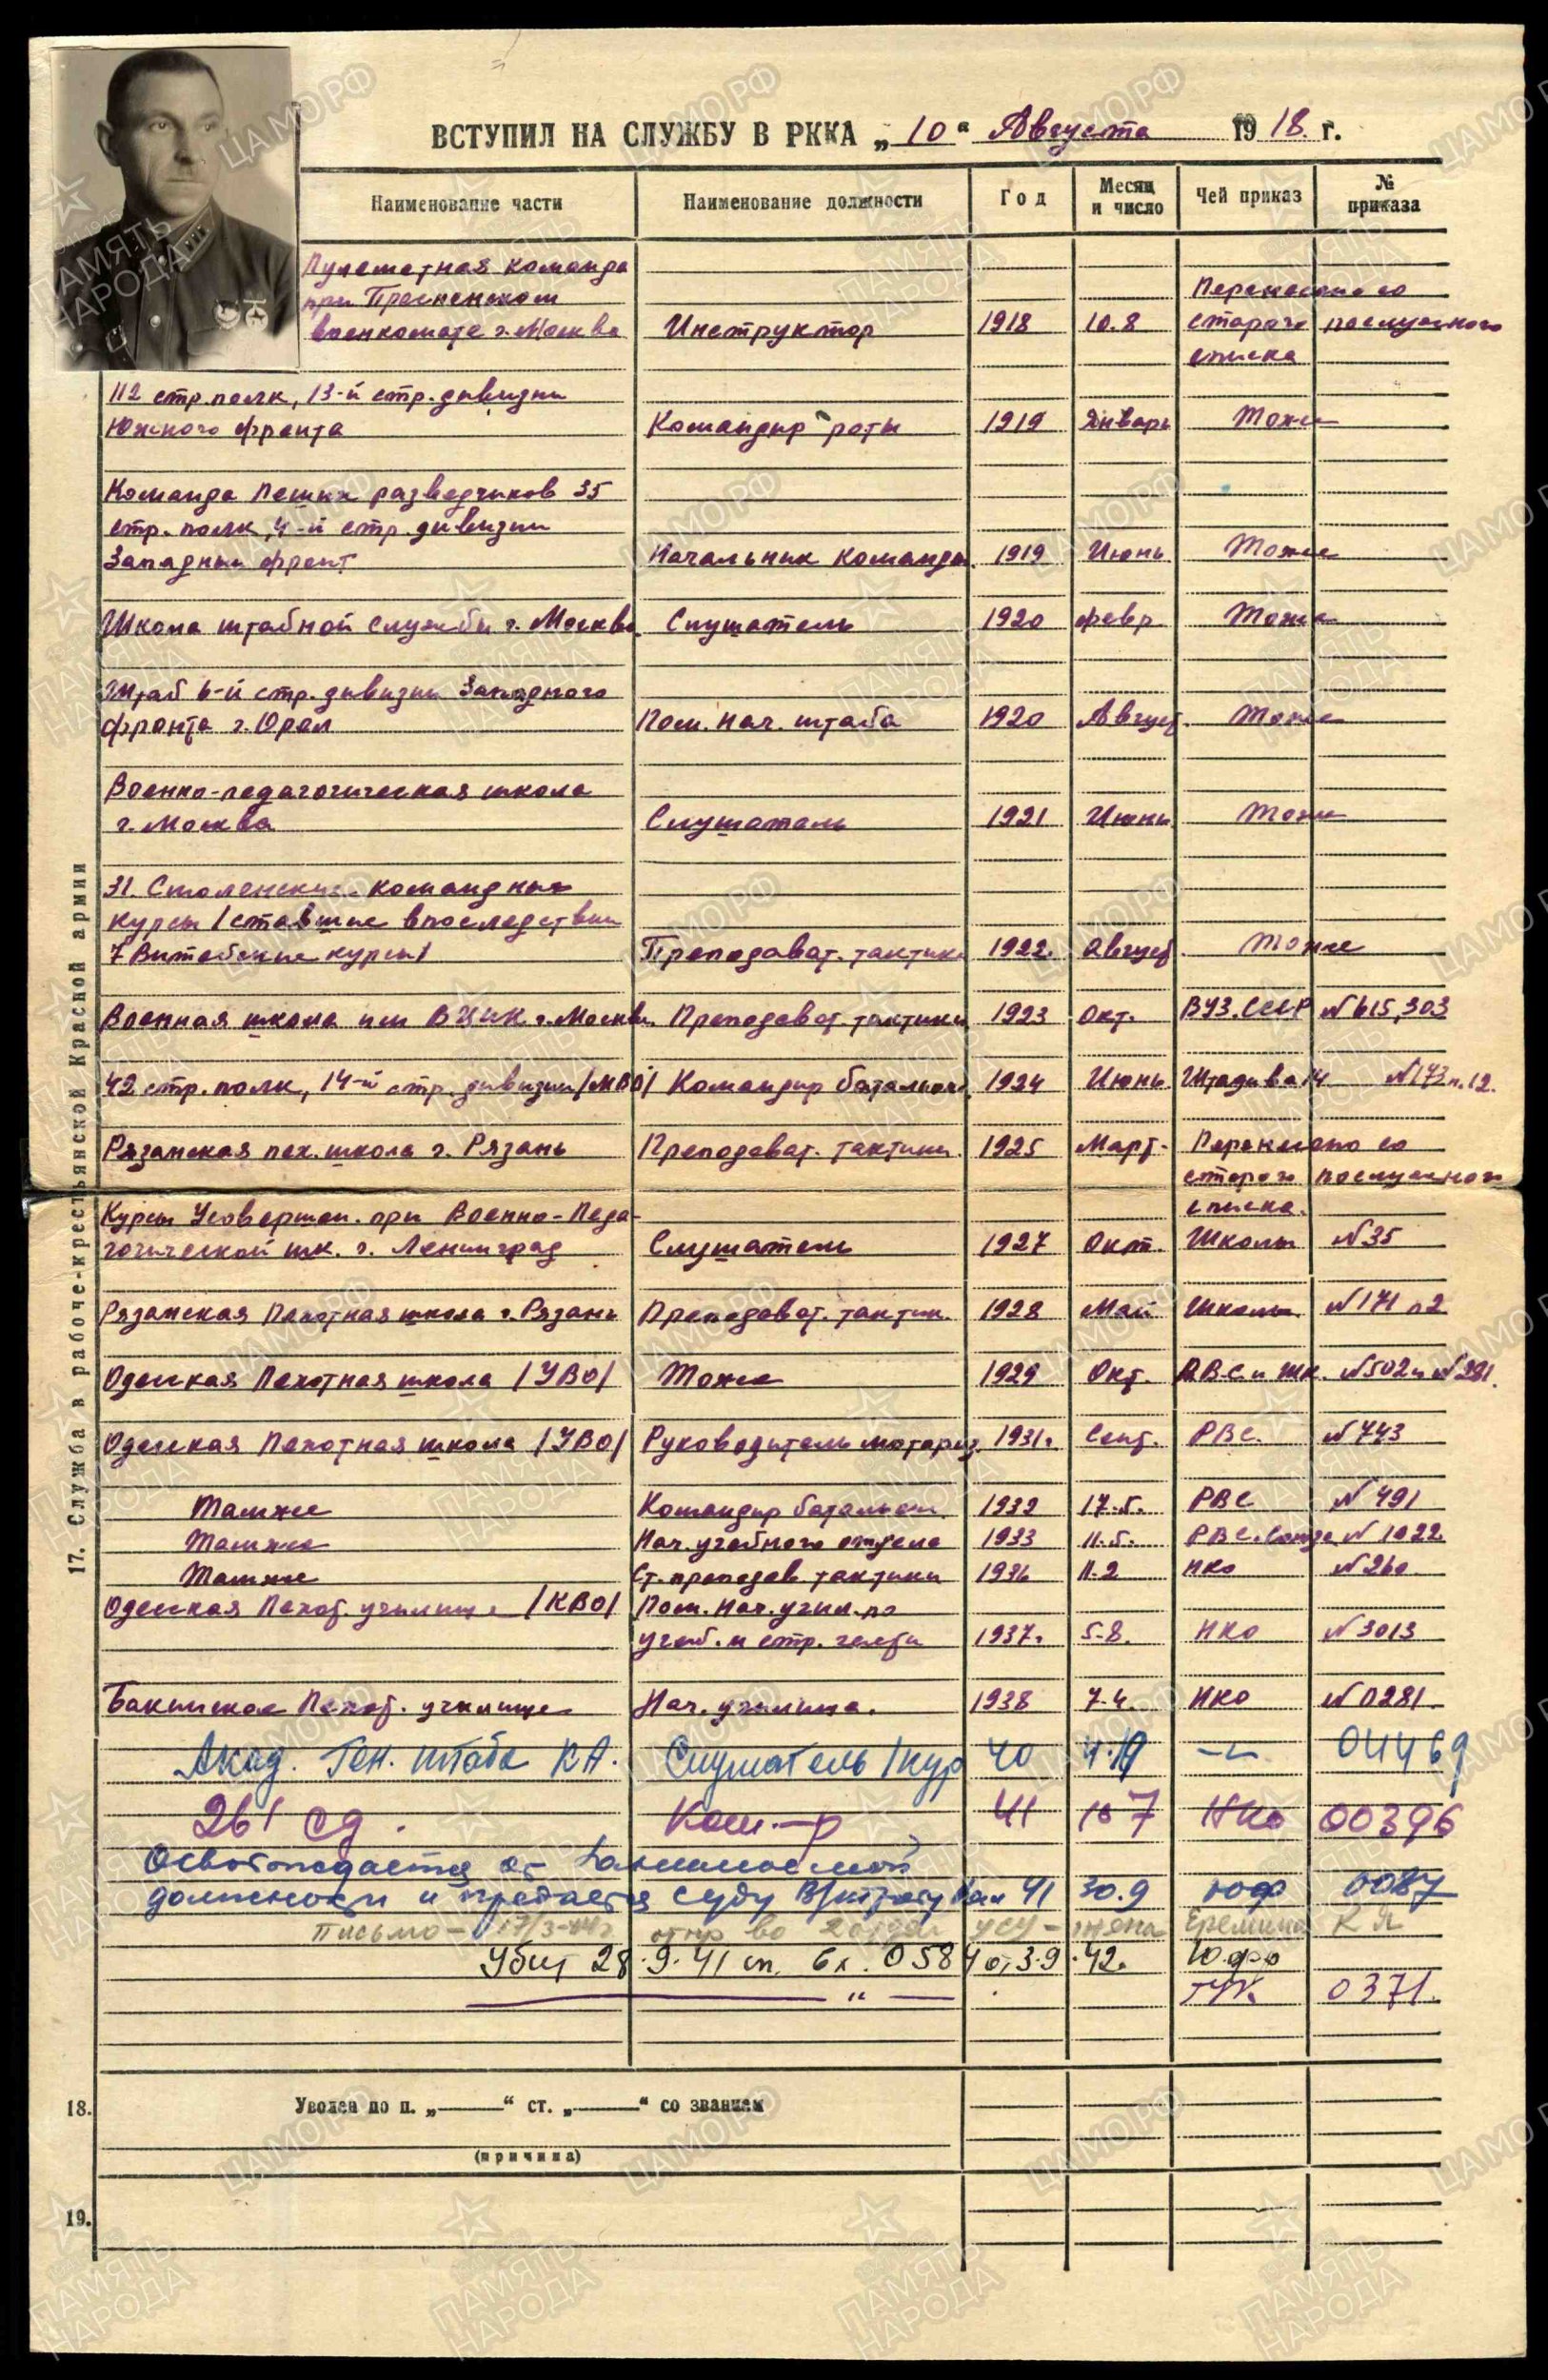 ВСТУПИЛ НА СЛУЖБУ В РККА „10“ Августа 1918 г.
Наименование части Наименование должности Год Месяц и число Чей приказ № приказа
Пулеметная команда
при Пресненском Перенесено со
военкомате г. Москва Инструктор 1918 10.8 старого послужного
списка
112 стр. полк, 13-й стр. дивизии
Южного фронта Командир роты 1919 Январь Тоже
Команда Пеших разведчиков 35
стр. полк, 4-й стр. дивизии
Западный фронт Начальник команды 1919 Июнь Тоже
Школа штабной службы г. Москва Слушатель 1920 февр Тоже
Штаб 6-й стр. дивизии Западного
фронта г. Орел Пом. нач. штаба 1920 Август. Тоже
Военно-педагогическая школа
г. Москва Слушатель 1921 Июнь Тоже
31. Смоленские командные
курсы /ставшие впоследствии
7 Витебские курсы/ Преподават. тактики 1922. Август. Тоже
Военная школа им ВЦИК г. Москва. Преподават. тактики 1923 Окт. ВУЗ. СССР №615, 303
42 стр. полк, 14-й стр. дивизии /МВО/ Командир батальона 1924 Июнь Штадива 14 №173 п.12.
Рязанская пех. школа г. Рязань Преподават. тактики. 1925 Март. Перенесено со
старого послужного
Курсы Усовершен. при Военно-Педа- списка.
гогической шк. г. Ленинград Слушатель 1927 Окт. Школы №35
Рязанская Пехотная школа г. Рязань Преподават. тактик. 1928 Май Школы №171 п2
Одесская Пехотная школа /УВО/ Тоже 1929 Окт. РВС и шк. №502 и №291.
Одесская Пехотная школа /УВО/ Руководитель моторн. 1931г. Сент. РВС. №743
Тамже Командир батальон. 1932 17.5. РВС №491
Тамже Нач. учебного отдела 1933 11.5. РВС. Союза №1022.
Тамже Ст. преподав. тактики 1936 11.2 НКО №260.
Одесская Пехот. училище /КВО/ Пом. Нач. учил. по
учеб. и стр. части 1937г. 5.8. НКО №3013
Бакинское Пехот. училище Нач. училища. 1938 7.4. НКО №0281.
Акад. Ген. штаба КА. Слушатель /кур 40 -"- 04469
261 сд. Ком-р 41 10 7 НКО 00396
Освобождается от занимаемой
должности и предается суду В/трибунал 41 30.9 ЮФ 0087
письмо - 17/3-44г жена Еремина К Я
Убит 28.9.41 сп. бл. 0584 от 3.9.42. Ю.фр
-"- ГУК 0371.
17. Служба в рабоче-крестьянской Красной армии
18. Уволен по п. „——“ ст. „——“ со званием
(причина)
19.
ЦАМО.РФ
ПАМЯТЬ
НАРОДА